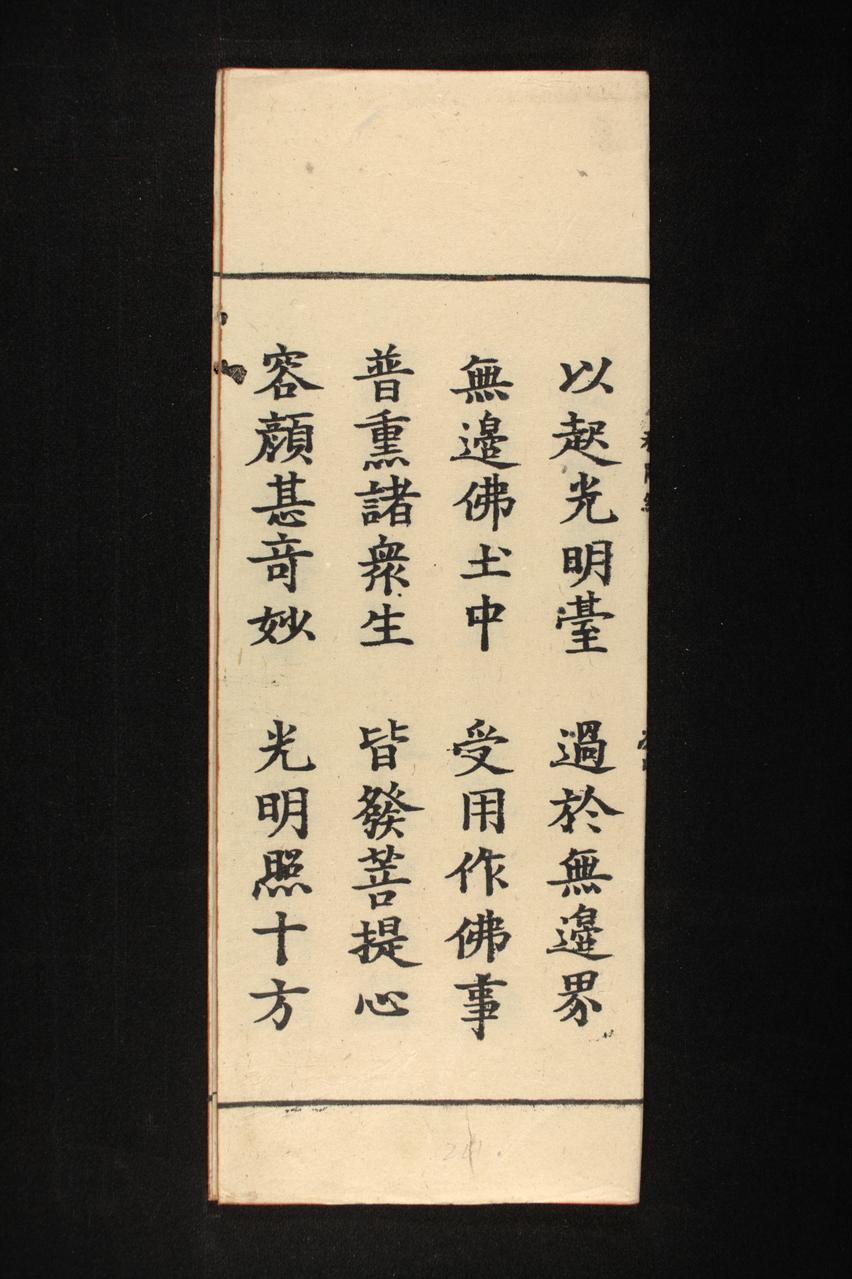 以起光明臺 過於無邊界
無邊佛土中 受用作佛事
普熏諸衆生 皆發菩提心
容顏甚奇妙 光明照十方